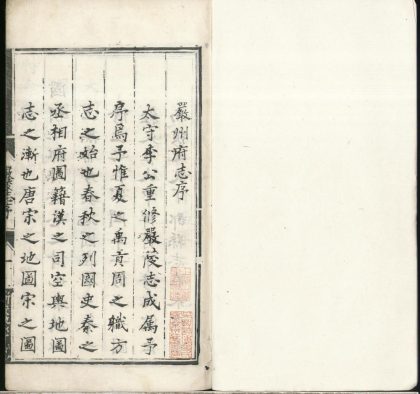 嚴州府志序
太守李公重修嚴陵志成属予
序焉予惟夏之禹貢周之職方
志之始也春秋之列國史秦之
丞相府圖籍漢之司空輿地圖
志之漸也唐宋之地圖宋之圖